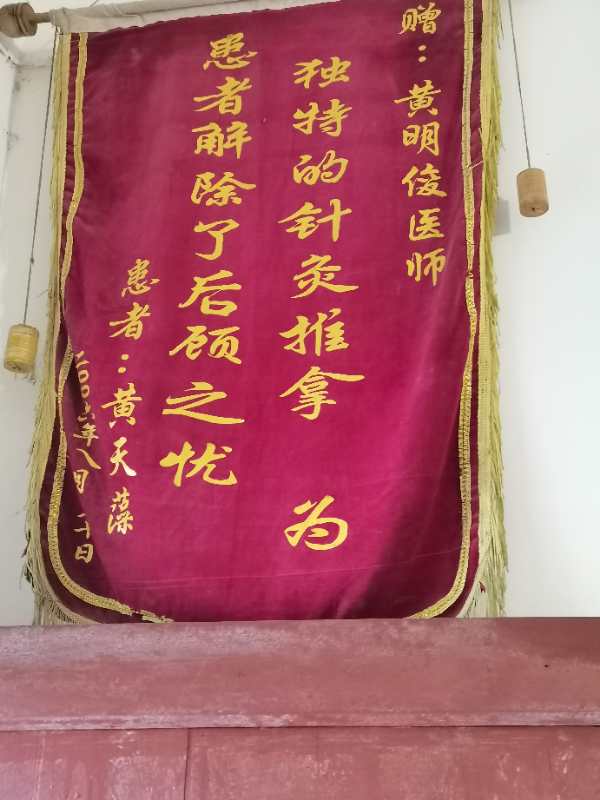 赠：黄明俊医师
独特的针灸推拿 为
患者解除了后顾之忧
患者：黄天藻
二00六年八月二十日